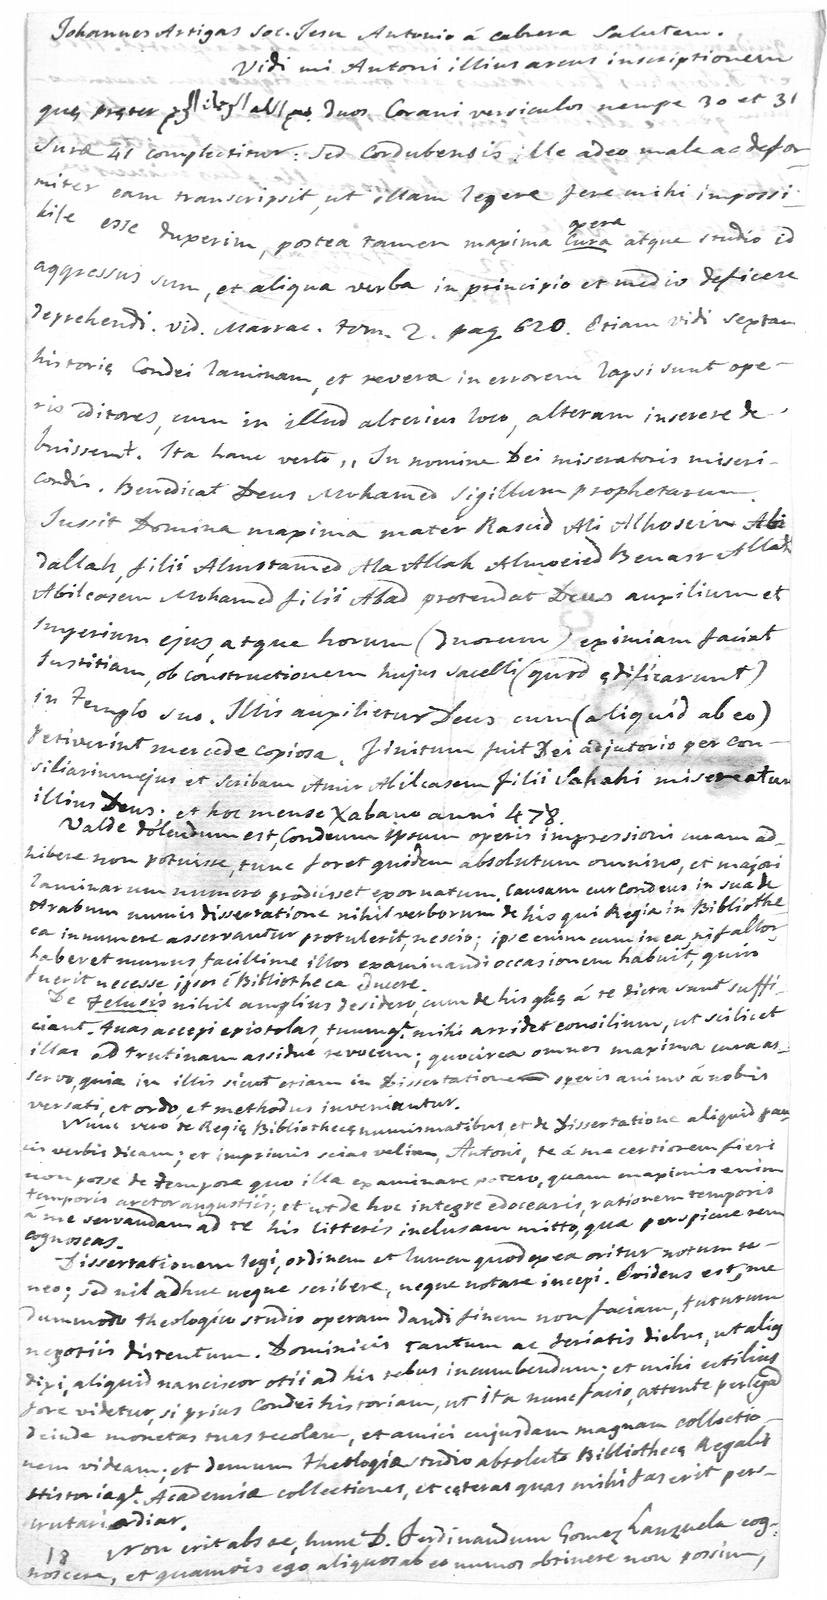 Johannes Artigas Soc. Jesu Antonio á Cabrera Salutem.
Vidi mi Antoni illius arcus inscriptionem
quę pręter duos Corani versiculos nempe 30 et 31
Suræ 41 complectitur: sed Cordubensis ille adeo male ac defor-
miter eam transcripsit, ut illam legere fere mihi impossi-
bile esse duxerim, postea tamen maxima opera
cura atque studio id
aggressus sum, et aliqua verba in principio et medio deficere
deprehendi. vid. Marrac. tom. 2. pag 620. Etiam vidi septam
historię Condei laminam, et revera in errorem lapsi sunt ope-
ris editores, cum in illud alterius loco, alteram inserere de-
buissent. Ita hanc verto ,, In nomine Dei miseratoris miseri-
cordis. Benedicat Deus Mohamed sigillum prophetarum.
Jussit Domina maxima mater Rascid Ali Alhosein Abi
dallah, filii Almotamed Ala Allah Almoeied Benasr Allah
Abilcasem Mohamed filii Abad protendat Deus auxilium et
Imperium ejus, atque horum (duorum) eximiam faciat
Justitiam, ob constructionem hujus sacelli (quod ędificarunt)
in Templo suo. Illis auxilietur Deus cum (aliquid ab eo)
petiverint mercede copiosa. Finitum fuit Dei adjutorio per con-
siliarium ejus et scribam Amir Abilcasem filii Hahahi misereatur
illius Deus; et hoc mense Xabano anni 478.
Valde dolendum est, Condeum ipsum operis impressioni curam ad-
hibere non potuisse, tunc foret quidem absolutum omnino, et majori
laminarum numero prodiisset exornatum. Causam cur Condeus in sua de
Arabum numis dissertatione nihil verborum de his qui Regia in Bibliothe-
ca innumere asservantur protulerit, nescio; ipse enim cum in ea, ni fallor,
haberet munus facillime illos examinandi occasionem habuit, quin
fuerit necesse, ipsos é Bibliotheca ducere.
De felusis nihil amplius desidero, cum de his quę á te dicta sunt suffi-
ciant. Tuas accepi epistolas, tuumq. mihi arridet consilium, ut scilicet
illas ad trutinam assidue revocem; quocirca omnes maxima cura as-
servo, quia in illis sicut etiam in Dissertatione operis animo á nobis
versati, et ordo, et methodus inveniantur.
Nunc vero de Regię Bibliothecę numismatibus, et de Dissertatione aliquid pau-
cis verbis dicam; et imprimis scias velim, Antoni, te á me certiorem fieri
non posse de tempore quo illa examinare potero, quam maximis enim
temporis arctor angustiis; et ut de hoc integre edocearis, rationem temporis
á me servandam ad te his litteris inclusam mitto, qua perspicue rem
cognoscas.
Dissertationem legi, ordinem et lumen quod ex ea oritur notum te-
neo; sed nil adhuc neque scribere, neque notare incepi. Evidens est, me
dummodo theologico studio operam dandi finem non faciam, futurum
negotiis distentum. Dominicis tantum ac feriatis diebus, ut aliq
dixi, aliquid nanciscor otii ad his rebus incumbendum; et mihi utilius
fore videtur, si prius Condei historiam, ut ita nunc facio, attente perlegam
deinde monetas tuas recolam, et amici cujusdam magnam collectio-
nem videam; et demum theologiæ studio absoluto Bibliothecę Regalis
Historiæq. Academiæ collectiones, et cęteras quas mihi fas erit pers-
crutari ordiar.
Non erit abs re, hunc D. Ferdinandum Gomez Lanzuela cog-
18
noscere, et quamvis ego aliquos ab eo numos obtinere non possim,